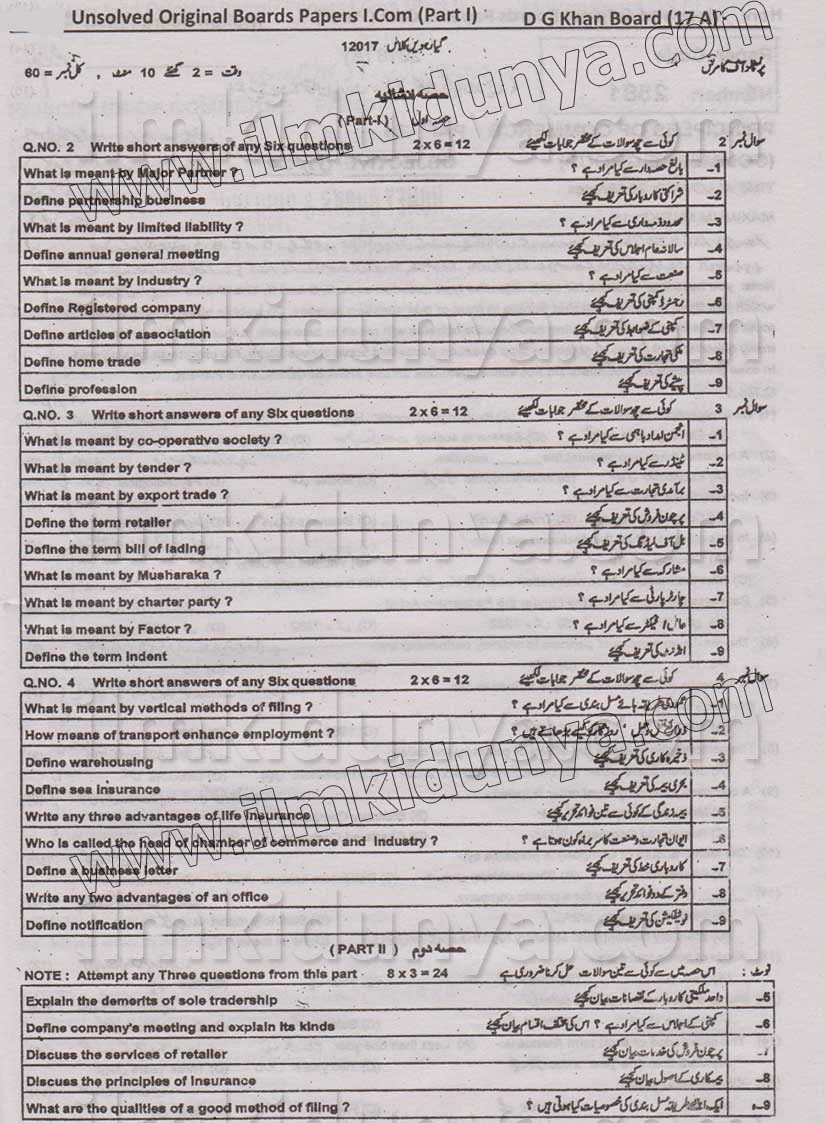 Unsolved Original Boards Papers I.Com (Part I) D G Khan Board (17 A)
12017 گیارہویں کلاس
پرنسپلز آف کامرس وقت = 2 گھنٹے 10 منٹ , کل نمبر = 60
حصہ انشائیہ
(Part-I) حصہ اول
Q.NO. 2 Write short answers of any Six questions 2 x 6 = 12 کوئی سے چھ سوالات کے مختصر جوابات لکھیئے سوال نمبر 2
What is meant by Major Partner ? بالغ حصہ دار سے کیا مراد ہے ؟ 1-
Define partnership business شراکتی کاروبار کی تعریف کیجئے 2-
What is meant by limited liability ? محدود ذمہ داری سے کیا مراد ہے ؟ 3-
Define annual general meeting سالانہ عام اجلاس کی تعریف کیجئے 4-
What is meant by Industry ? صنعت سے کیا مراد ہے ؟ 5-
Define Registered company رجسٹرڈ کمپنی کی تعریف کیجئے 6-
Define articles of association کمپنی کے ضوابط کی تعریف کیجئے 7-
Define home trade ملکی تجارت کی تعریف کیجئے 8-
Define profession پیشے کی تعریف کیجئے 9-
Q.NO. 3 Write short answers of any Six questions 2 x 6 = 12 کوئی سے چھ سوالات کے مختصر جوابات لکھیئے سوال نمبر 3
What is meant by co-operative society ? انجمن امداد باہمی سے کیا مراد ہے ؟ 1-
What is meant by tender ? ٹینڈر سے کیا مراد ہے ؟ 2-
What is meant by export trade ? برآمدی تجارت سے کیا مراد ہے ؟ 3-
Define the term retailer پرچون فروش کی تعریف کیجئے 4-
Define the term bill of lading بل آف لیڈنگ کی تعریف کیجئے 5-
What is meant by Musharaka ? مشارکہ سے کیا مراد ہے ؟ 6-
What is meant by charter party ? چارٹر پارٹی سے کیا مراد ہے ؟ 7-
What is meant by Factor ? عامل / فیکٹر سے کیا مراد ہے ؟ 8-
Define the term Indent انڈنٹ کی تعریف کیجئے 9-
Q.NO. 4 Write short answers of any Six questions 2 x 6 = 12 کوئی سے چھ سوالات کے مختصر جوابات لکھیئے سوال نمبر 4
What is meant by vertical methods of filing ? عمودی طریقہ ہائے مسل بندی سے کیا مراد ہے ؟ 1-
How means of transport enhance employment ? ذرائع نقل و حمل روزگار کو کیسے بڑھاتے ہیں ؟ 2-
Define warehousing ذخیرہ کاری کی تعریف کیجئے 3-
Define sea insurance بحری بیمہ کی تعریف کیجئے 4-
Write any three advantages of life insurance بیمہ زندگی کے کوئی سے تین فوائد تحریر کیجئے 5-
Who is called the head of chamber of commerce and industry ? ایوان تجارت و صنعت کا سربراہ کون ہوتا ہے ؟ 6-
Define a business letter کاروباری خط کی تعریف کیجئے 7-
Write any two advantages of an office دفتر کے دو فوائد تحریر کیجئے 8-
Define notification نوٹیفکیشن کی تعریف کیجئے 9-
(PART II) حصہ دوم
NOTE : Attempt any Three questions from this part 8 x 3 = 24 اس حصہ میں سے کوئی سے تین سوالات حل کرنا ضروری ہے نوٹ :
Explain the demerits of sole tradership واحد ملکیتی کاروبار کے نقصانات بیان کیجئے 5-
Define company's meeting and explain its kinds کمپنی کے اجلاس سے کیا مراد ہے ؟ اس کی مختلف اقسام بیان کیجئے 6-
Discuss the services of retailer پرچون فروش کی خدمات بیان کیجئے 7-
Discuss the principles of insurance بیمہ کاری کے اصول بیان کیجئے 8-
What are the qualities of a good method of filing ? ایک اچھے طریقہ مسل بندی کی خصوصیات کیا ہوتی ہیں ؟ 9-
www.ilmkidunya.com
ilmkidunya.com
ilmkidunya.com
www.ilmkidunya.com
ilmkidunya.com